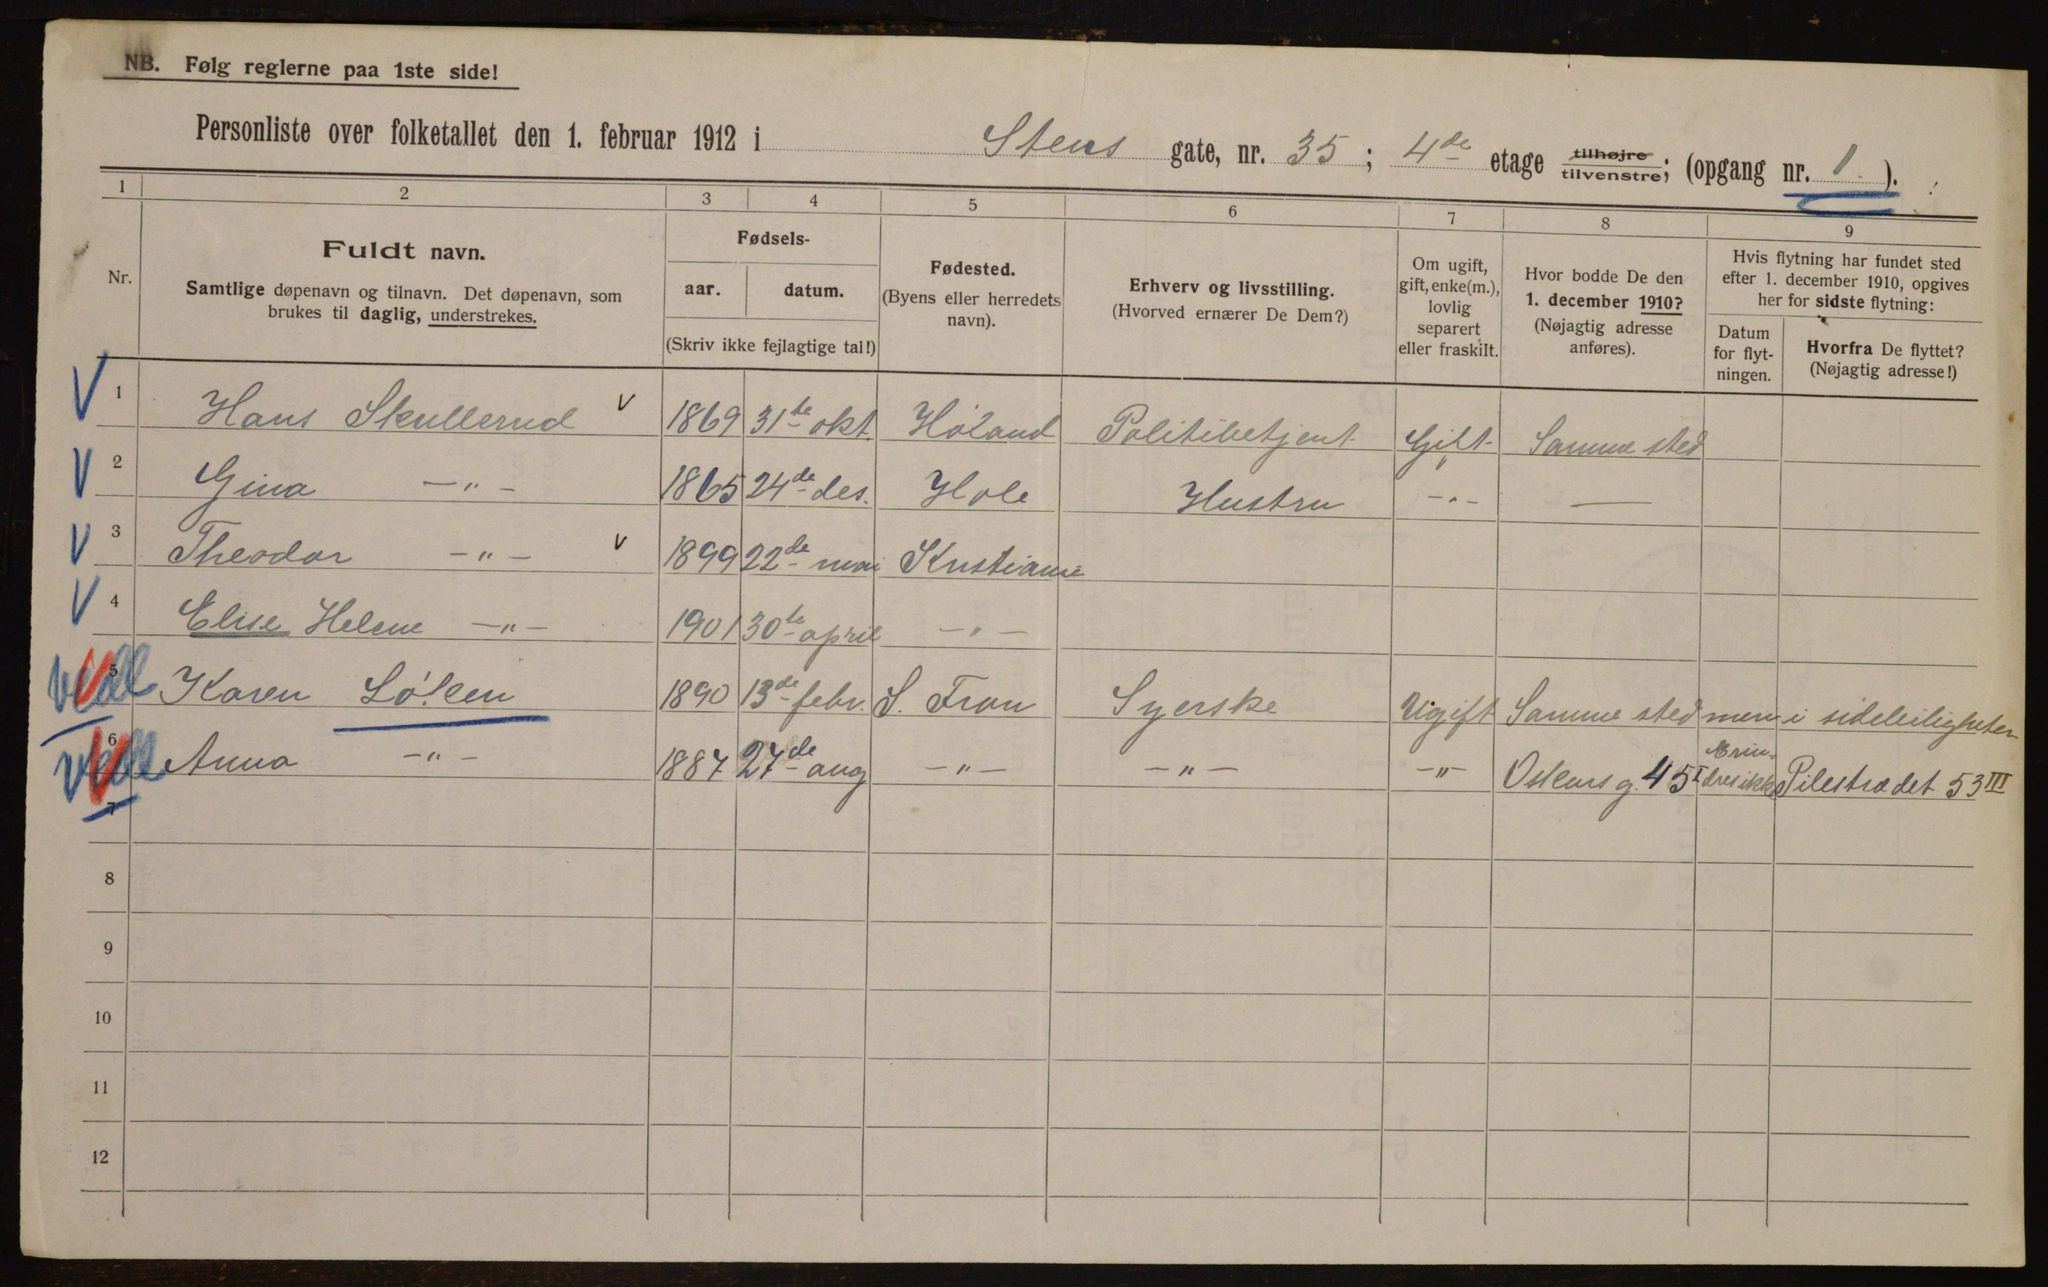 NB. Følg reglerne paa 1ste side!
Personliste over folketallet den 1. februar 1912 i Stens gate, nr. 35 ; 4de etage tilhøjre tilvenstre; (opgang nr. 1 ).
1 2 3 4 5 6 7 8 9
Nr.
Fuldt navn.
Samtlige døpenavn og tilnavn. Det døpenavn, som
brukes til daglig, understrekes.
Fødsels-
aar. datum.
(Skriv ikke fejlagtige tal!)
Fødested.
(Byens eller herredets
navn).
Erhverv og livsstilling.
(Hvorved ernærer De Dem?)
Om ugift,
gift, enke(m.),
lovlig
separert
eller fraskilt.
Hvor bodde De den
1. december 1910?
(Nøjagtig adresse
anføres).
Hvis flytning har fundet sted
efter 1. december 1910, opgives
her for sidste flytning:
Datum
for flyt-
ningen.
Hvorfra De flyttet?
(Nøjagtig adresse!)
V 1 Hans Skullerud V 1869 31te okt. Høland Politibetjent Gift Samme sted
V 2 Gina —„— 1865 24de des. Hole Hustru —„— —
V 3 Theodor —„— V 1899 22de mai Kristiania
V 4 Elise Helene —„— 1901 30te april —„—
vedl 5 Karen Løken 1890 13de febr. S. Fron Syerske Ugift Samme sted men i sideleiligheten
vedl 6 Anna —„— 1887 27de aug —„— —„— —„— Oskars g. 45 I Erin-
dres ikke Pilestrædet 53 III
7
8
9
10
11
12